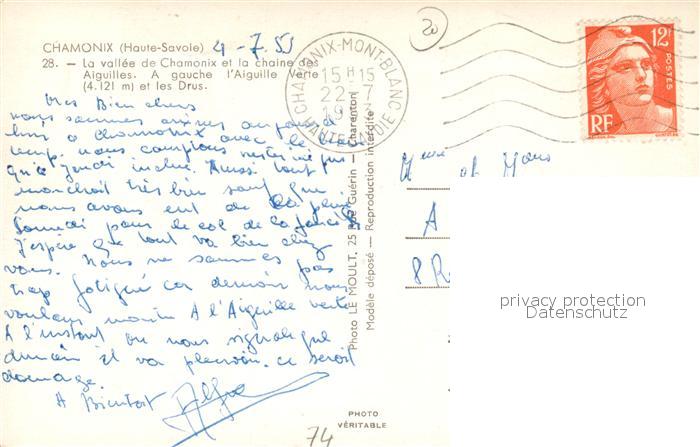 CHAMONIX (Haute-Savoie) 4-7.53
28. — La vallée de Chamonix et la chaine des
Aiguilles. A gauche l'Aiguille Verte
(4.121 m) et les Drus.
Mes Bien chers
nous sommes arrivés aujourd
hui a Chamonix avec le beau
temp. nous comptions rester ici jus
qu'a jeudi inclu. Aussi tout
marchait très bien sauf que
nous avons eut de la pluie
samedi pour le col de la
J'espère que tout va bien chez
vous. Nous ne sommes pas
trop fatigué car demain nous
voulons monter A l'Aiguille verte
A l'instant on nous signale que
demain il va pleuvoir. ce serait
domage.
A Bientot
CHAMONIX-MONT-BLANC
15 H 15
22-7
19
HAUTE-SAVOIE
20
12F
POSTES
RF
Photo LE MOULT, 25 Rue Guérin — Charenton
Modèle déposé — Reproduction interdite
Mme et Mons
A
8 R
privacy protection
Datenschutz
PHOTO
VÉRITABLE
74